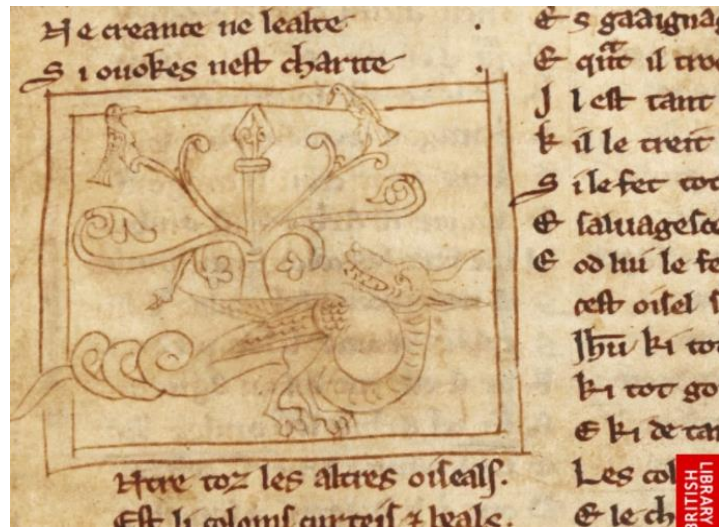 N e creance ne lealte
S i ouokes nest charite
Ntre toz les altres oiseals.
Est li coloms curteis ⁊ beals.
E s gaaignag
E qnt il tro
I l est tant
K il le treit
S ile fet tot
E saluagesce
E od lui le fe
cest oisel s
Ihu ki tot
ki tot go
E ki de tan
Les col
E le ch
BRITISH
LIBRARY